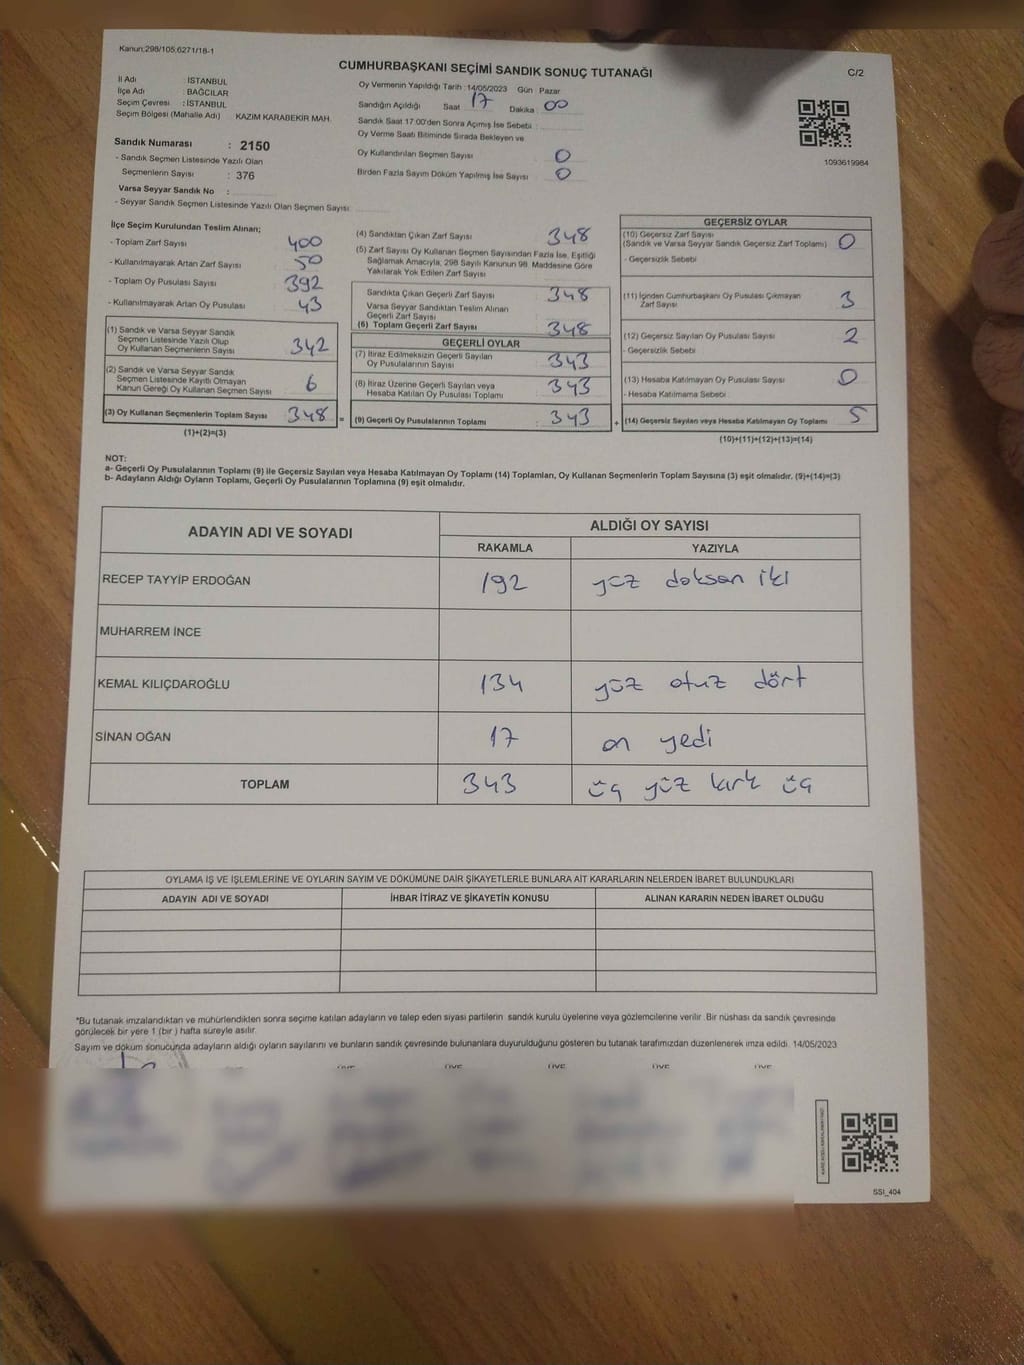 Kanun:298/105;6271/18-1
CUMHURBAŞKANI SEÇİMİ SANDIK SONUÇ TUTANAĞI
C/2
İl Adı : İSTANBUL
İlçe Adı : BAĞCILAR
Seçim Çevresi : İSTANBUL
Seçim Bölgesi (Mahalle Adı) KAZIM KARABEKİR MAH.
Sandık Numarası : 2150
- Sandık Seçmen Listesinde Yazılı Olan
Seçmenlerin Sayısı : 376
Varsa Seyyar Sandık No :
- Seyyar Sandık Seçmen Listesinde Yazılı Olan Seçmen Sayısı:
Oy Vermenin Yapıldığı Tarih :14/05/2023 Gün : Pazar
Sandığın Açıldığı Saat : 17 Dakika : 00
Sandık Saat 17:00'den Sonra Açımış İse Sebebi :
Oy Verme Saati Bitiminde Sırada Bekleyen ve
Oy Kullandırılan Seçmen Sayısı : 0
Birden Fazla Sayım Döküm Yapılmış İse Sayısı : 0
1093619984
İlçe Seçim Kurulundan Teslim Alınan;
- Toplam Zarf Sayısı : 400
- Kullanılmayarak Artan Zarf Sayısı : 50
- Toplam Oy Pusulası Sayısı : 392
- Kullanılmayarak Artan Oy Pusulası : 43
(1) Sandık ve Varsa Seyyar Sandık
Seçmen Listesinde Yazılı Olup
Oy Kullanan Seçmenlerin Sayısı : 342
(2) Sandık ve Varsa Seyyar Sandık
Seçmen Listesinde Kayıtlı Olmayan
Kanun Gereği Oy Kullanan Seçmen Sayısı : 6
(3) Oy Kullanan Seçmenlerin Toplam Sayısı : 348 =
(1)+(2)=(3)
(4) Sandıktan Çıkan Zarf Sayısı : 348
(5) Zarf Sayısı Oy Kullanan Seçmen Sayısından Fazla İse, Eşitliği
Sağlamak Amacıyla, 298 Sayılı Kanunun 98. Maddesine Göre
Yakılarak Yok Edilen Zarf Sayısı :
Sandıkta Çıkan Geçerli Zarf Sayısı : 348
Varsa Seyyar Sandıktan Teslim Alınan
Geçerli Zarf Sayısı :
(6) Toplam Geçerli Zarf Sayısı : 348
GEÇERLİ OYLAR
(7) İtiraz Edilmeksizin Geçerli Sayılan
Oy Pusulalarının Sayısı : 343
(8) İtiraz Üzerine Geçerli Sayılan veya
Hesaba Katılan Oy Pusulası Toplamı : 343
(9) Geçerli Oy Pusulalarının Toplamı : 343 +
GEÇERSİZ OYLAR
(10) Geçersiz Zarf Sayısı
(Sandık ve Varsa Seyyar Sandık Geçersiz Zarf Toplamı) : 0
- Geçersizlik Sebebi :
(11) İçinden Cumhurbaşkanı Oy Pusulası Çıkmayan
Zarf Sayısı : 3
(12) Geçersiz Sayılan Oy Pusulası Sayısı : 2
- Geçersizlik Sebebi :
(13) Hesaba Katılmayan Oy Pusulası Sayısı : 0
- Hesaba Katılmama Sebebi :
(14) Geçersiz Sayılan veya Hesaba Katılmayan Oy Toplamı : 5
(10)+(11)+(12)+(13)=(14)
NOT:
a- Geçerli Oy Pusulalarının Toplamı (9) ile Geçersiz Sayılan veya Hesaba Katılmayan Oy Toplamı (14) Toplamları, Oy Kullanan Seçmenlerin Toplam Sayısına (3) eşit olmalıdır. (9)+(14)=(3)
b- Adayların Aldığı Oyların Toplamı, Geçerli Oy Pusulalarının Toplamına (9) eşit olmalıdır.
ADAYIN ADI VE SOYADI ALDIĞI OY SAYISI
RAKAMLA YAZIYLA
RECEP TAYYİP ERDOĞAN 192 yüz doksan iki
MUHARREM İNCE
KEMAL KILIÇDAROĞLU 134 yüz otuz dört
SİNAN OĞAN 17 on yedi
TOPLAM 343 üç yüz kırk üç
OYLAMA İŞ VE İŞLEMLERİNE VE OYLARIN SAYIM VE DÖKÜMÜNE DAİR ŞİKAYETLERLE BUNLARA AİT KARARLARIN NELERDEN İBARET BULUNDUKLARI
ADAYIN ADI VE SOYADI İHBAR İTİRAZ VE ŞİKAYETİN KONUSU ALINAN KARARIN NEDEN İBARET OLDUĞU
*Bu tutanak imzalandıktan ve mühürlendikten sonra seçime katılan adayların ve talep eden siyasi partilerin sandık kurulu üyelerine veya gözlemcilerine verilir. Bir nüshası da sandık çevresinde
görülecek bir yere 1 (bir ) hafta süreyle asılır.
Sayım ve döküm sonucunda adayların aldığı oyların sayılarını ve bunların sandık çevresinde bulunanlara duyurulduğunu gösteren bu tutanak tarafımızdan düzenlenerek imza edildi. 14/05/2023
ÜYE ÜYE ÜYE ÜYE ÜYE
SSI_404